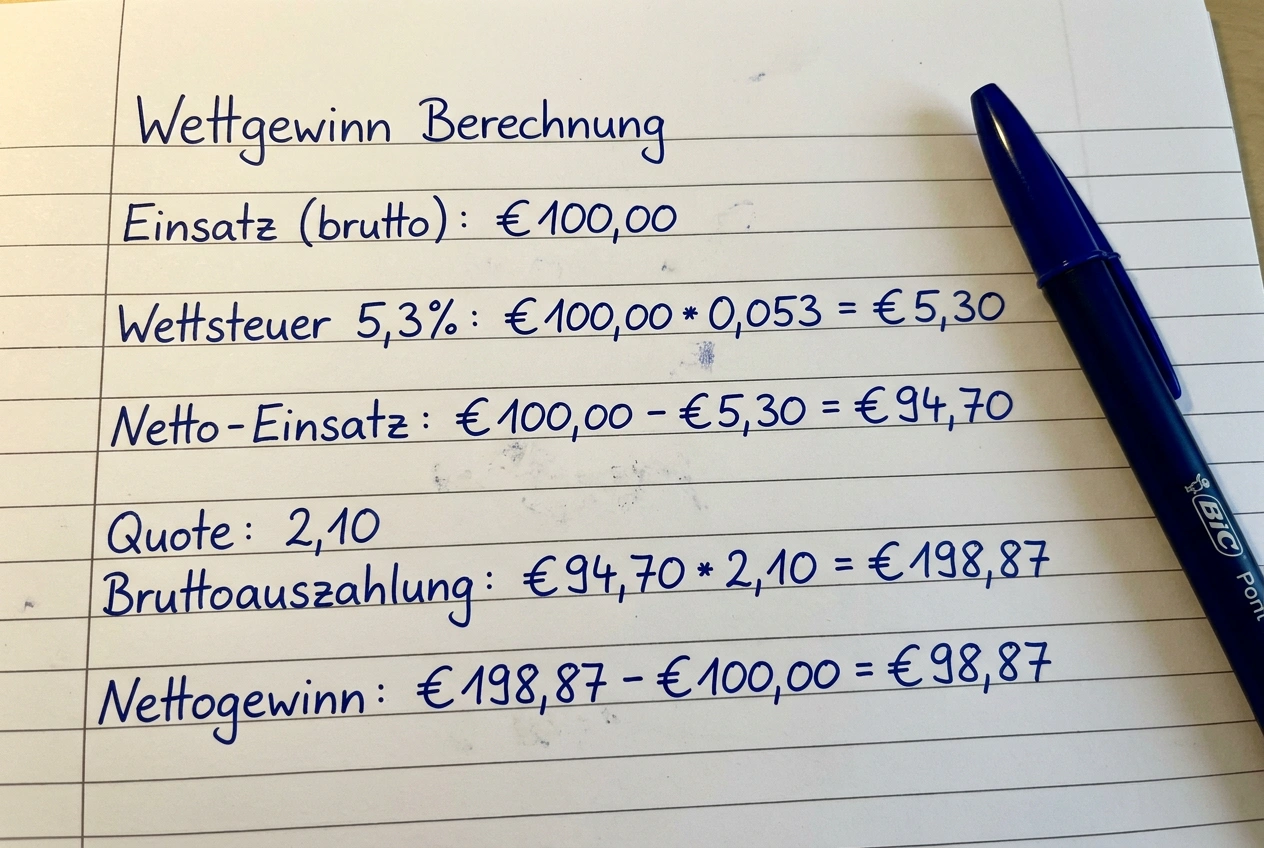 Wettgewinn Berechnung
Einsatz (brutto): €100,00
Wettsteuer 5,3%: €100,00 * 0,053 = €5,30
Netto-Einsatz: €100,00 - €5,30 = €94,70
Quote: 2,10
Bruttoauszahlung: €94,70 * 2,10 = €198,87
Nettogewinn: €198,87 - €100,00 = €98,87
BIC